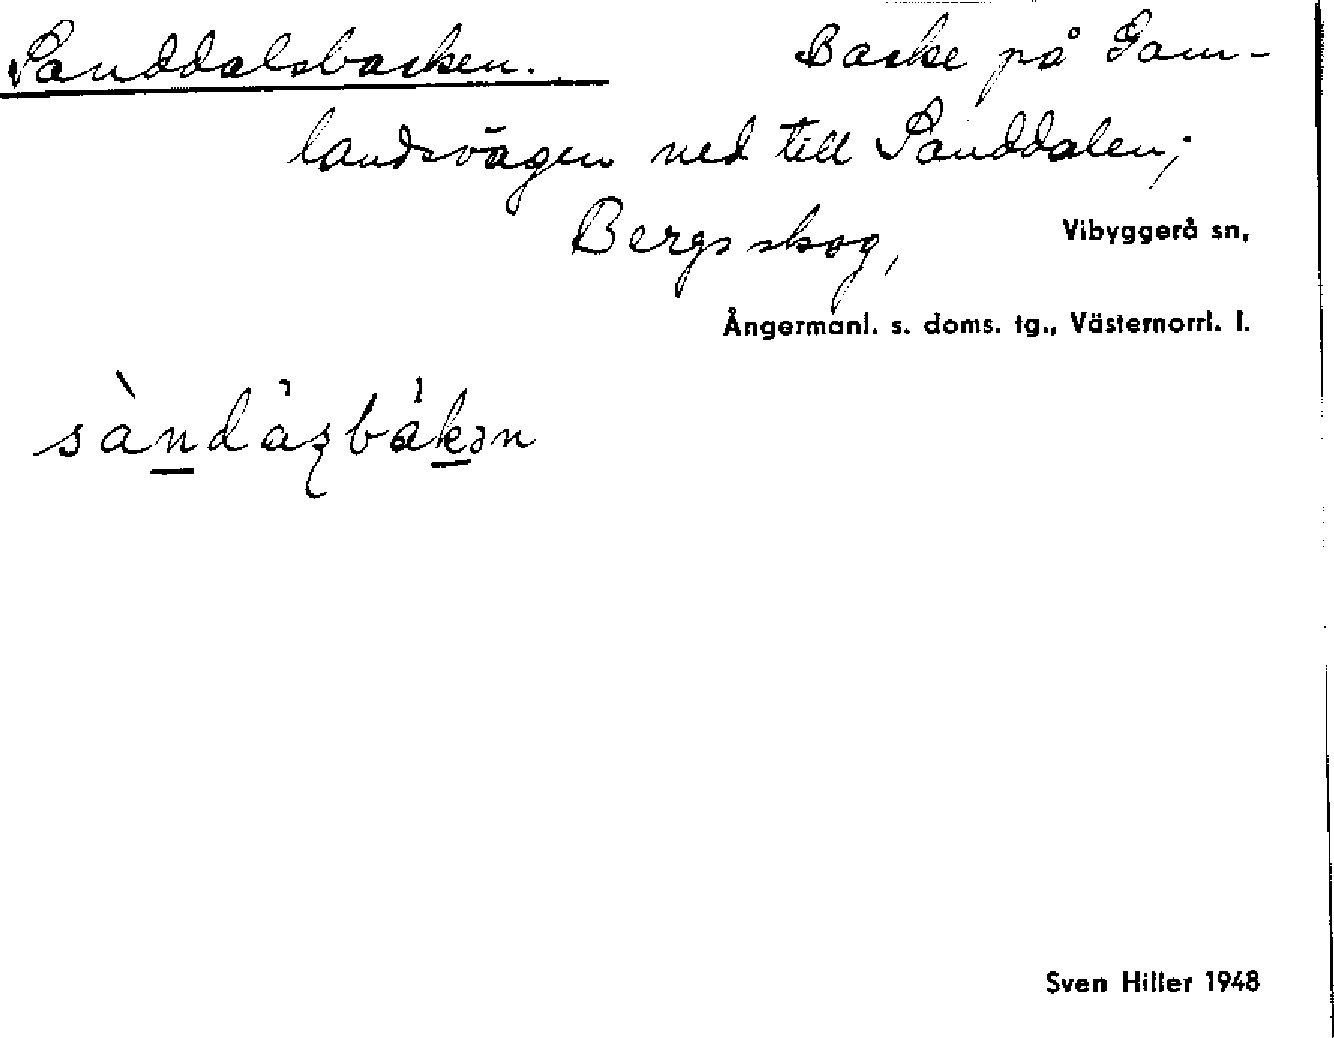 Sanddalsbacken. Backe på Gam-
landsvägen ned till Sanddalen;
Bergsskog, Vibyggerå sn,
Ångermanl. s. doms. tg., Västernorrl. l.
Sven Hiller 1948